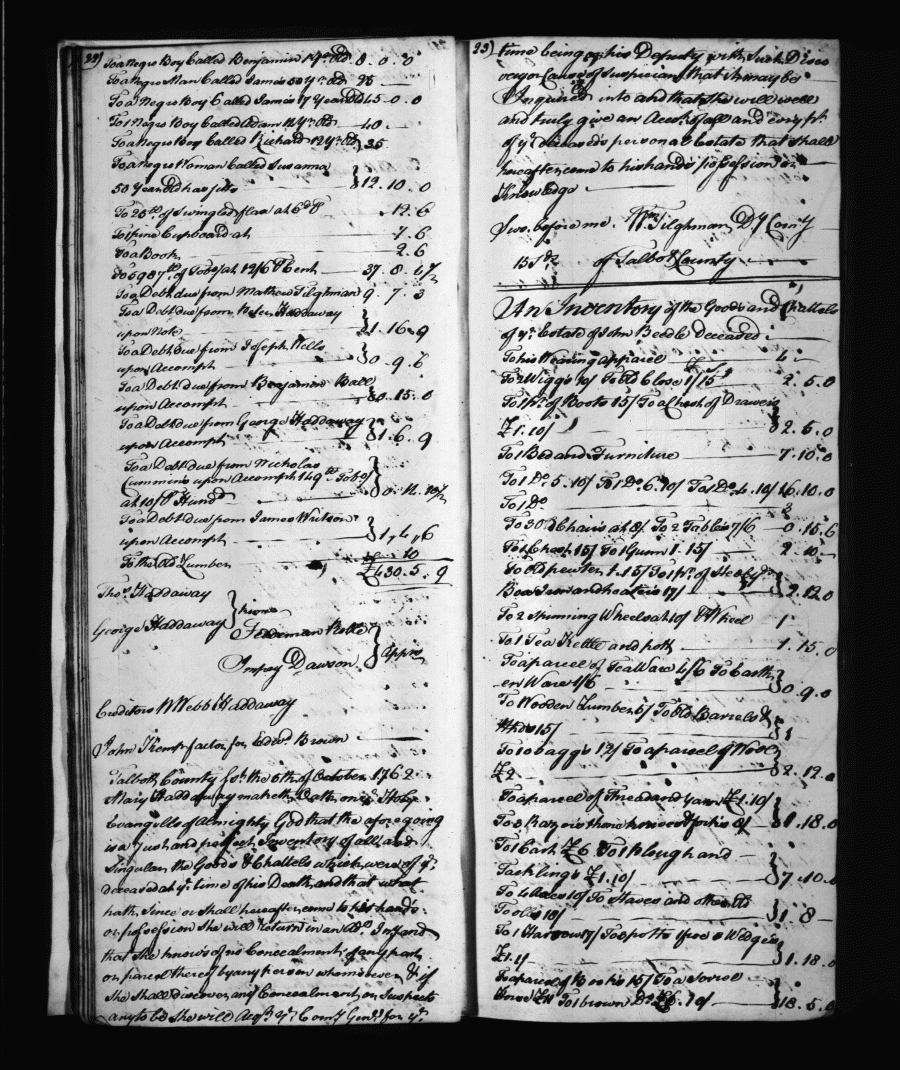 22)
To a Negro Boy Called Benjamin 14 Yr. Old 8. 0. 0
To a Negro Man Called James 50 Yr. Old 25
To a Negro Boy Called James 17 Year Old 45. 0. 0
To 1 Negro Boy Called Adam 12 Yr. Old 40. -
To a Negro Boy Called Richard 12 Yr. Old 35
To a Negro Woman Called Susanna
50 Year Old has fits } 12. 10. 0
To 26 lb. of Swingled flax at 6d P 12. 6
To 1 pine Cupboard at 7. 6
To a Book 2. 6
To 5987 lb. of Tobo. at 12/6 P Cent 37. 8. 4½
To a Debt due from Mathew Tilghman 9. 7. 3
To a Debt due from Haddaway
upon Note } 1. 16. 9
To a Debt due from Joseph Wells
upon Accompt } 0. 9. 6
To a Debt due from Benjamin Ball
upon Accompt } 0. 15. 0
To a Debt due from George Haddaway
upon Accompt } 1. 6. 9
To a Debt due from Nicholas
Cummins upon Accompt 149 lb. Tobo.
at 10/ P Hund. } 0. 14. 10½
To a Debt due from James Watson
upon Accompt } 1,, 4,, 6
To the Old Lumber 10
£430. 5. 9
Thos. Haddaway
George Haddaway }
Feddeman Rolle
Impey Dawson } Apprs
Creditors W Webb Haddaway
John Kemp factor for Edwd. Brown
Talbott County Sst. the 6th. of October 1762
Mary Haddaway maketh Oath on ye. Holy
Evangells of Almighty God that the aforegoing
is a Just and perfect Inventory of all and
Singular the Goods & Chattels which were of ye.
deceased at ye. time of his Death and that what
hath Since or shall hereafter come to her hands
or possession She will return in an Addl. Inv. and
that She knows of no Concealment of any part
or parcel thereof by any person whomsoever & if
She shall discover any Concealment or Suspects
any to be She will Acqt. ye. Comy. Genl. for ye.
23)
time being or his Deputy with Such Disco
very or Cause of Suspicion that it may be
Inquired into and that She will well
and truly give an Acct. of all and every pt.
of ye. deceased's personal Estate that shall
hereafter come to his hands possession or
Knowledge
Swo. before me. Wm. Tilghman D.y Com.y
of Talbot County
An Inventory of the Goods and Chattels
of ye. Estate of John Beedle Deceased
To his Wearing apparel 4 -
To 2 Wiggs 10/ To Old Close 1/15 2. 5. 0
To 1 Pr. of Boots 15/ To a Chest of Drawers
£1. 10/ } 2. 5. 0
To 1 Bed and Furniture 7. 10. 0
To 1 Do. 5. 10/ To 1 Do. 6. 10/ To 1 Do. 4. 10/ 16. 10. 0
To 1 Do. 3
To 3 Old Chairs at 8/ To 2 Tables 7/6 0. 15. 6
To 1 Chest 15/ To 1 Gunn 1. 15/ 2. 10. -
To Old pewter 1. 15/ To 1 Pr. of
and heaters 17/ } 2. 12. 0
To 2 Spinning Wheels at 10/ & Wheel 1
To 1 Tea Kettle and pott 1. 15. 0
To a parcel of Tea Ware 4/6 To Earth
en Ware 4/6 } 0. 9. 0
To Wooden Lumber 5/ To Old Barrels &
Hhds 15/ } 1
To 10 baggs 12/ To a parcel of Wool
£2 } 2. 12. 0
To a parcel of Thread and Yarn £1. 10/
To 3 Razors 8/ } 1. 18. 0
To 1 Cart £6 To 1 Plough and
Tacklings £1. 10/ } 7. 10. 0
To 4 Axes 10/ To Staves and other Old
Tools 18/ } 1. 8 -
To 1 Harrow 17/ Wedges
£1. 1/ } 1. 18. 0
To a parcel of Books 15/ To a Sorrel
Horse £11 To 1 brown Do. £6. 10/ } 18. 5. 0